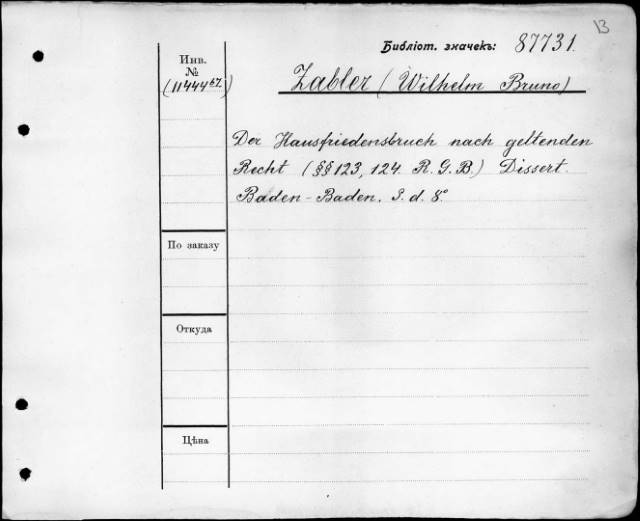 13
Библіот. значекъ: 87731.
Инв.
№
(11444⁶⁷)
Zabler (Wilhelm Bruno)
Der Hausfriedensbruch nach geltenden
Recht (§§ 123, 124. R. G. B.) Dissert.
Baden-Baden. S. d. 8°
По заказу
Откуда
Цѣна